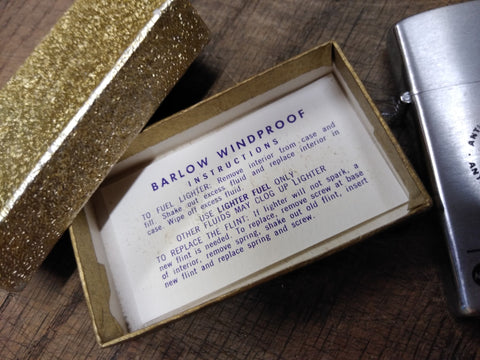 BARLOW WINDPROOF
INSTRUCTIONS
TO FUEL LIGHTER: Remove interior from case and
fill. Shake out excess fluid and replace interior in
case. Wipe off excess fluid.
USE LIGHTER FUEL ONLY.
OTHER FLUIDS MAY CLOG UP LIGHTER
TO REPLACE THE FLINT: If lighter will not spark, a
new flint is needed. To replace, remove screw at base
of interior, remove spring, shake out old flint, insert
new flint and replace spring and screw.